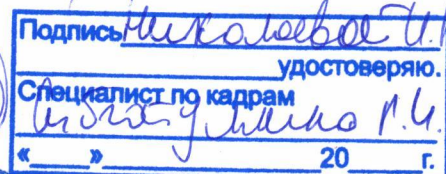 Подпись Николаевой И.
удостоверяю.
Специалист по кадрам
Г.И.
«____»____________20______г.